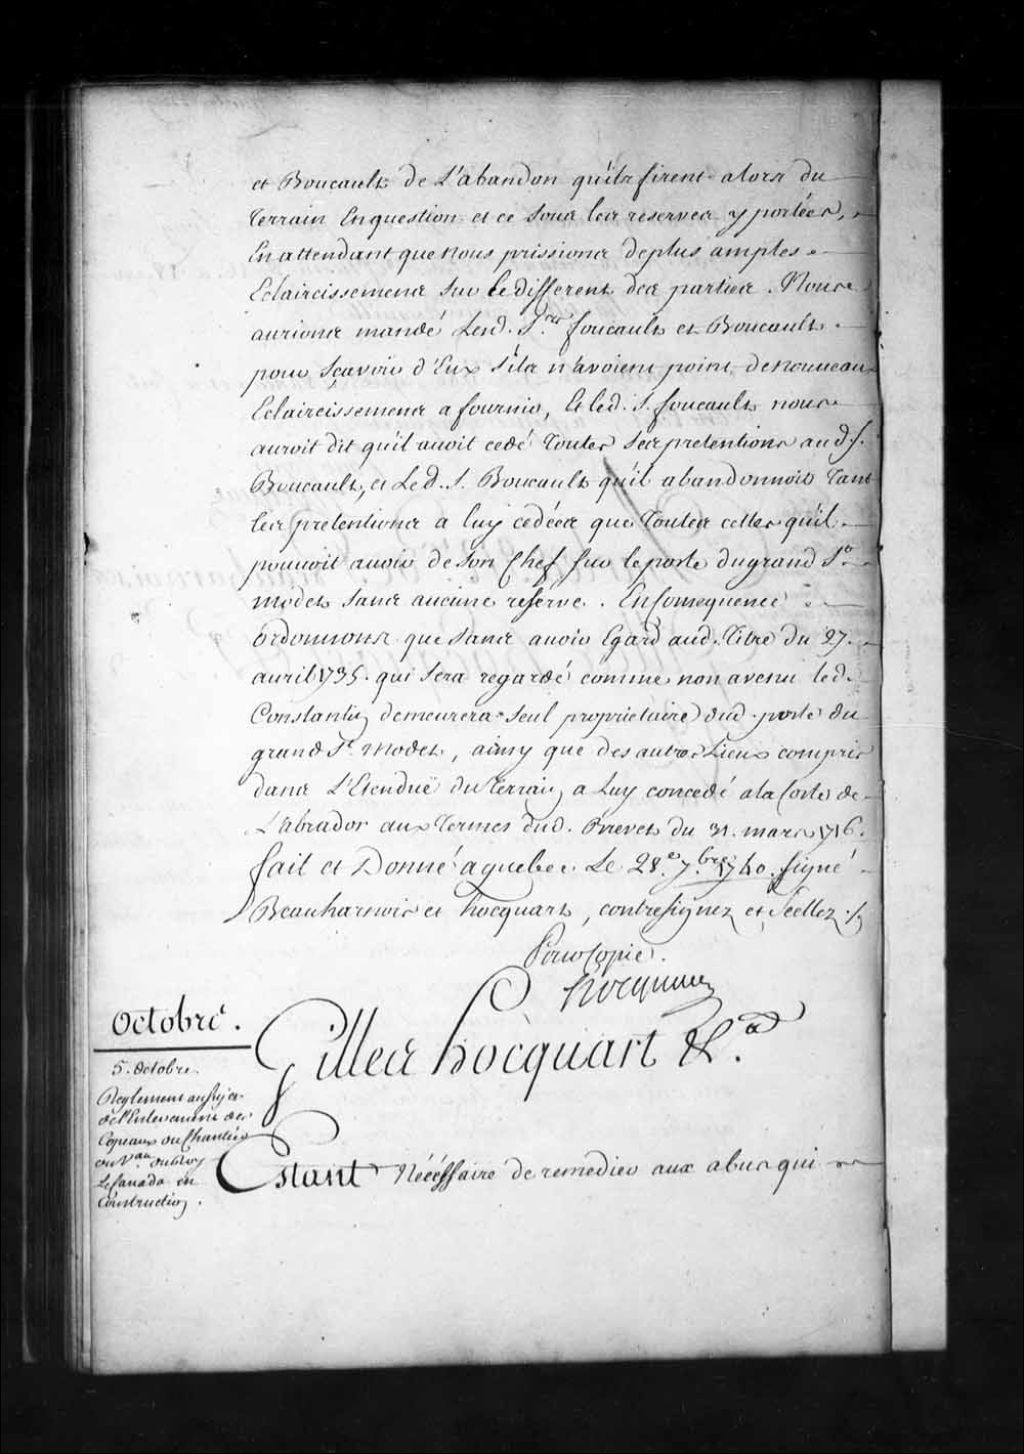 et Boucault de L'abandon quils firent alors du
Terrain En question et ce sous les reserves y portées,
En attendant que nous prissions de plus amples
Eclaircissemens sur le different des parties. Nous
aurions mandé Lesd. Srs. foucault et Boucault
pour sçavoir d'Eux s'ils n'avoient point de nouveaux
Eclaircissemens a fournir, Et led. S. foucault nous
auroit dit qu'il avoit cedé Toutes ses pretentions aud. S.
Boucault, et Led. S. Boucault qu'il abandonnoit Tant
les pretentions a luy cedées que Toutes celles qu'il
pouvoit avoir de son Chef sur le poste du grand St.
Modet sans aucune reserve. En Consequence
ordonnons que sans avoir Egard aud. Titre du 27.
avril 1735. qui sera regardé comme non avenu led.
Constantin demeurera seul proprietaire dud. poste du
grand St. Modet, ainsy que des autres Lieux compris
dans L'Etenduë du Terrain a Luy concedé a la Coste de
L'abrador aux Termes dud. Brevet du 31. mars 1716.
fait et Donné a quebec Le 28e. 7bre. 1740. signé
Beauharnois et hocquart, contresignez et Scellez ./.
Pour Copie.
hocquart
Octobre.
Gilles hocquart &a.
5. Octobre.
Reglement au sujet
de l'Enlevement des
Copeaux du Chantier
du Vau. du Roy
Le Canada en
Construction.
Estant Nécessaire de remedier aux abus qui